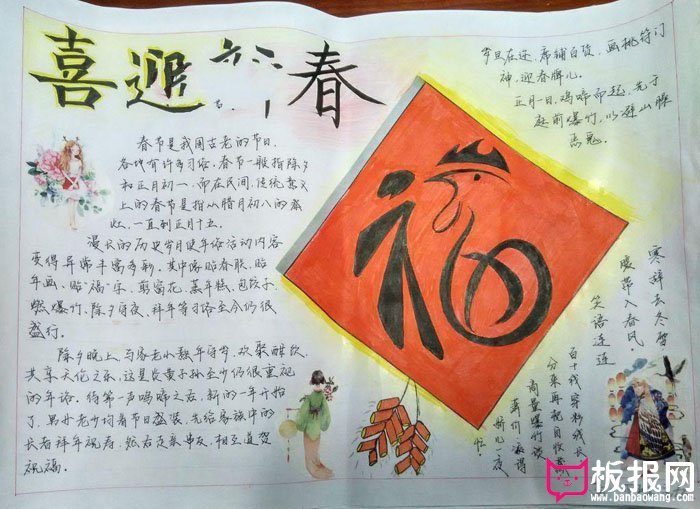 喜迎 春
春节是我国古老的节日。
各地有许多习俗，春节一般指除夕
和正月初一。而在民间，传统意义
上的春节是指从腊月初八的
灶，一直到正月十五。
漫长的历史岁月使年俗活动内容
变得异常丰富多彩。其中像贴春联、贴
年画、贴"福"字、剪窗花、蒸年糕、包饺子、
燃爆竹、除夕守夜、拜年等习俗至今仍很
盛行。
除夕晚上，与家老小熬年守岁，欢聚酣饮，
共享天伦之乐，这是炎黄子孙至今仍很重视
的年俗。待第一声鸡啼之后，新的一年开始
了，男女老少均着节日盛装，先给家族中的
长者拜年祝寿，然后走亲串友，相互道贺
祝福。
岁旦在迩，席铺百货，画桃符门
神，迎春牌儿。
正月一日，鸡啼而起，先于
庭前爆竹，以避山臊
恶鬼。
寒辞去冬雪
暖带入春风
笑语连连
百十钱寄
分来再把
商量爆竹谈
新儿一夜
忙。
板报网
www.banbaowang.com